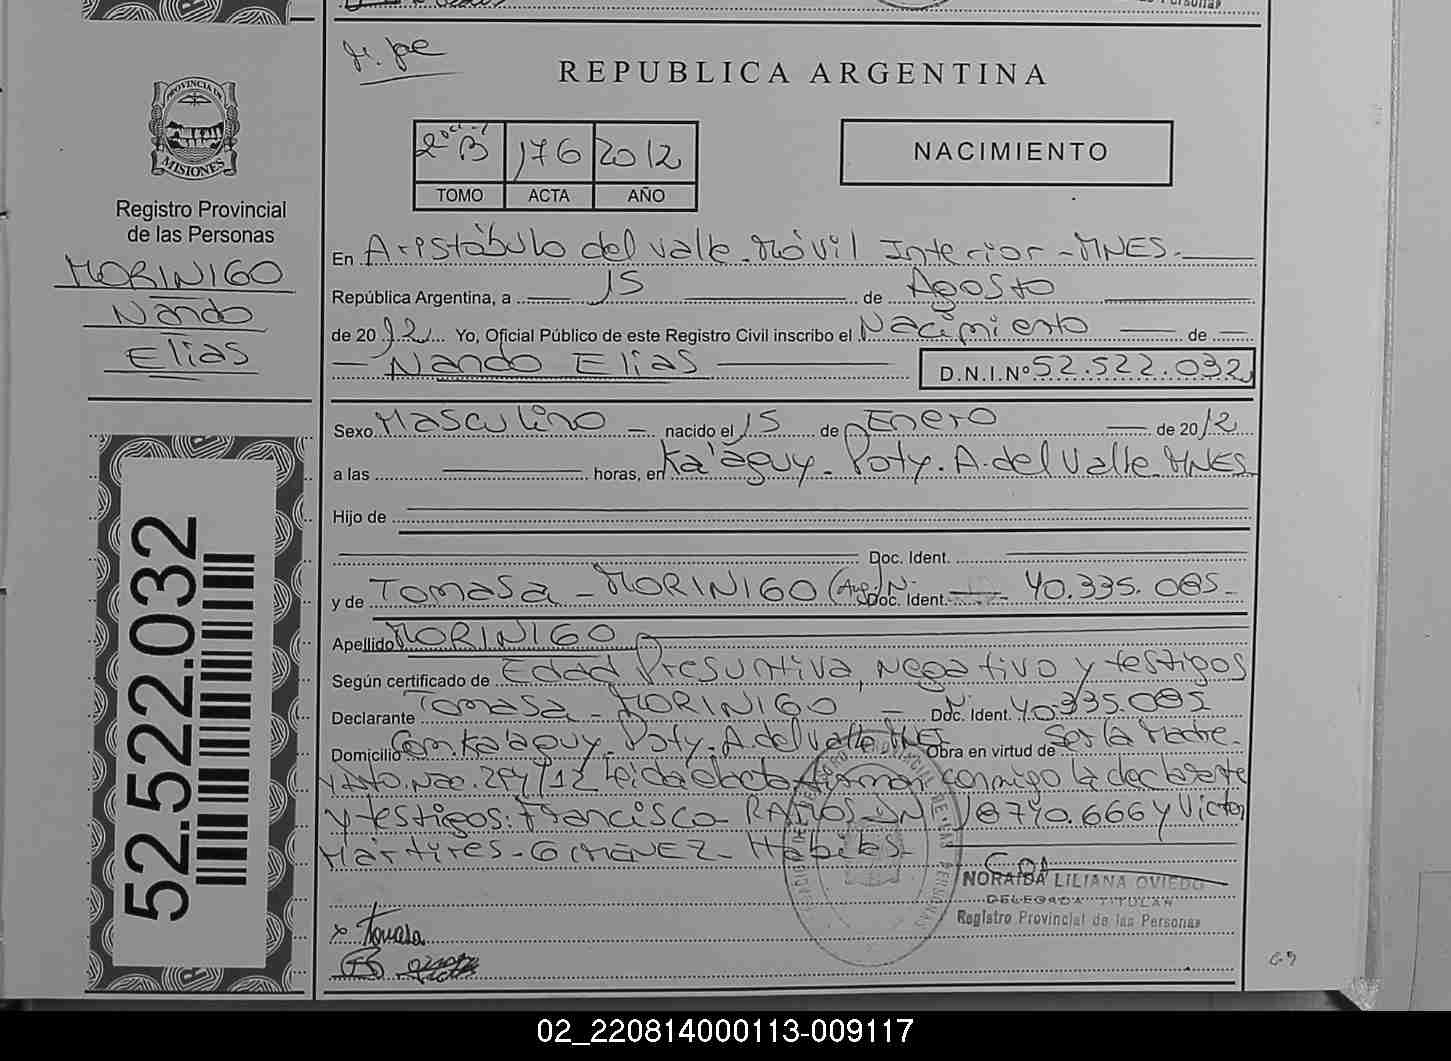 REPUBLICA ARGENTINA
PROVINCIA DE
MISIONES
Registro Provincial
de las Personas
MORINIGO
Nando
Elias
52.522.032
2º B 176 2012
TOMO ACTA AÑO
NACIMIENTO
En Aristóbulo del valle. Móvil Interior - MNES.
República Argentina, a 15 de Agosto
de 2012 Yo, Oficial Público de este Registro Civil inscribo el Nacimiento de
Nando Elias D.N.I.Nº 52.522.032
Sexo Masculino nacido el 15 de Enero de 2012
a las horas, en Ka'aguy. Poty. A. del Valle. MNES
Hijo de
Doc. Ident.
y de Tomasa - MORINIGO (Arg.) Doc. Ident. 40.335.085-
Apellido MORINIGO
Según certificado de Edad Presuntiva, negativo y testigos
Declarante Tomasa - MORINIGO - Doc. Ident. 40.335.085
Domicilio Com. Ka'aguy. Poty. A. del valle MNES Obra en virtud de Ser la Madre.
Nac. 294/12 Leida el acta firman conmigo la declarante
y testigos: Francisco RAMOS DNI 18740.666 y Victor
Martires - GIMENEZ - Habiles
NORAIDA LILIANA OVIEDO
DELEGADA TITULAR
Registro Provincial de las Personas
x Tomasa
02_220814000113-009117